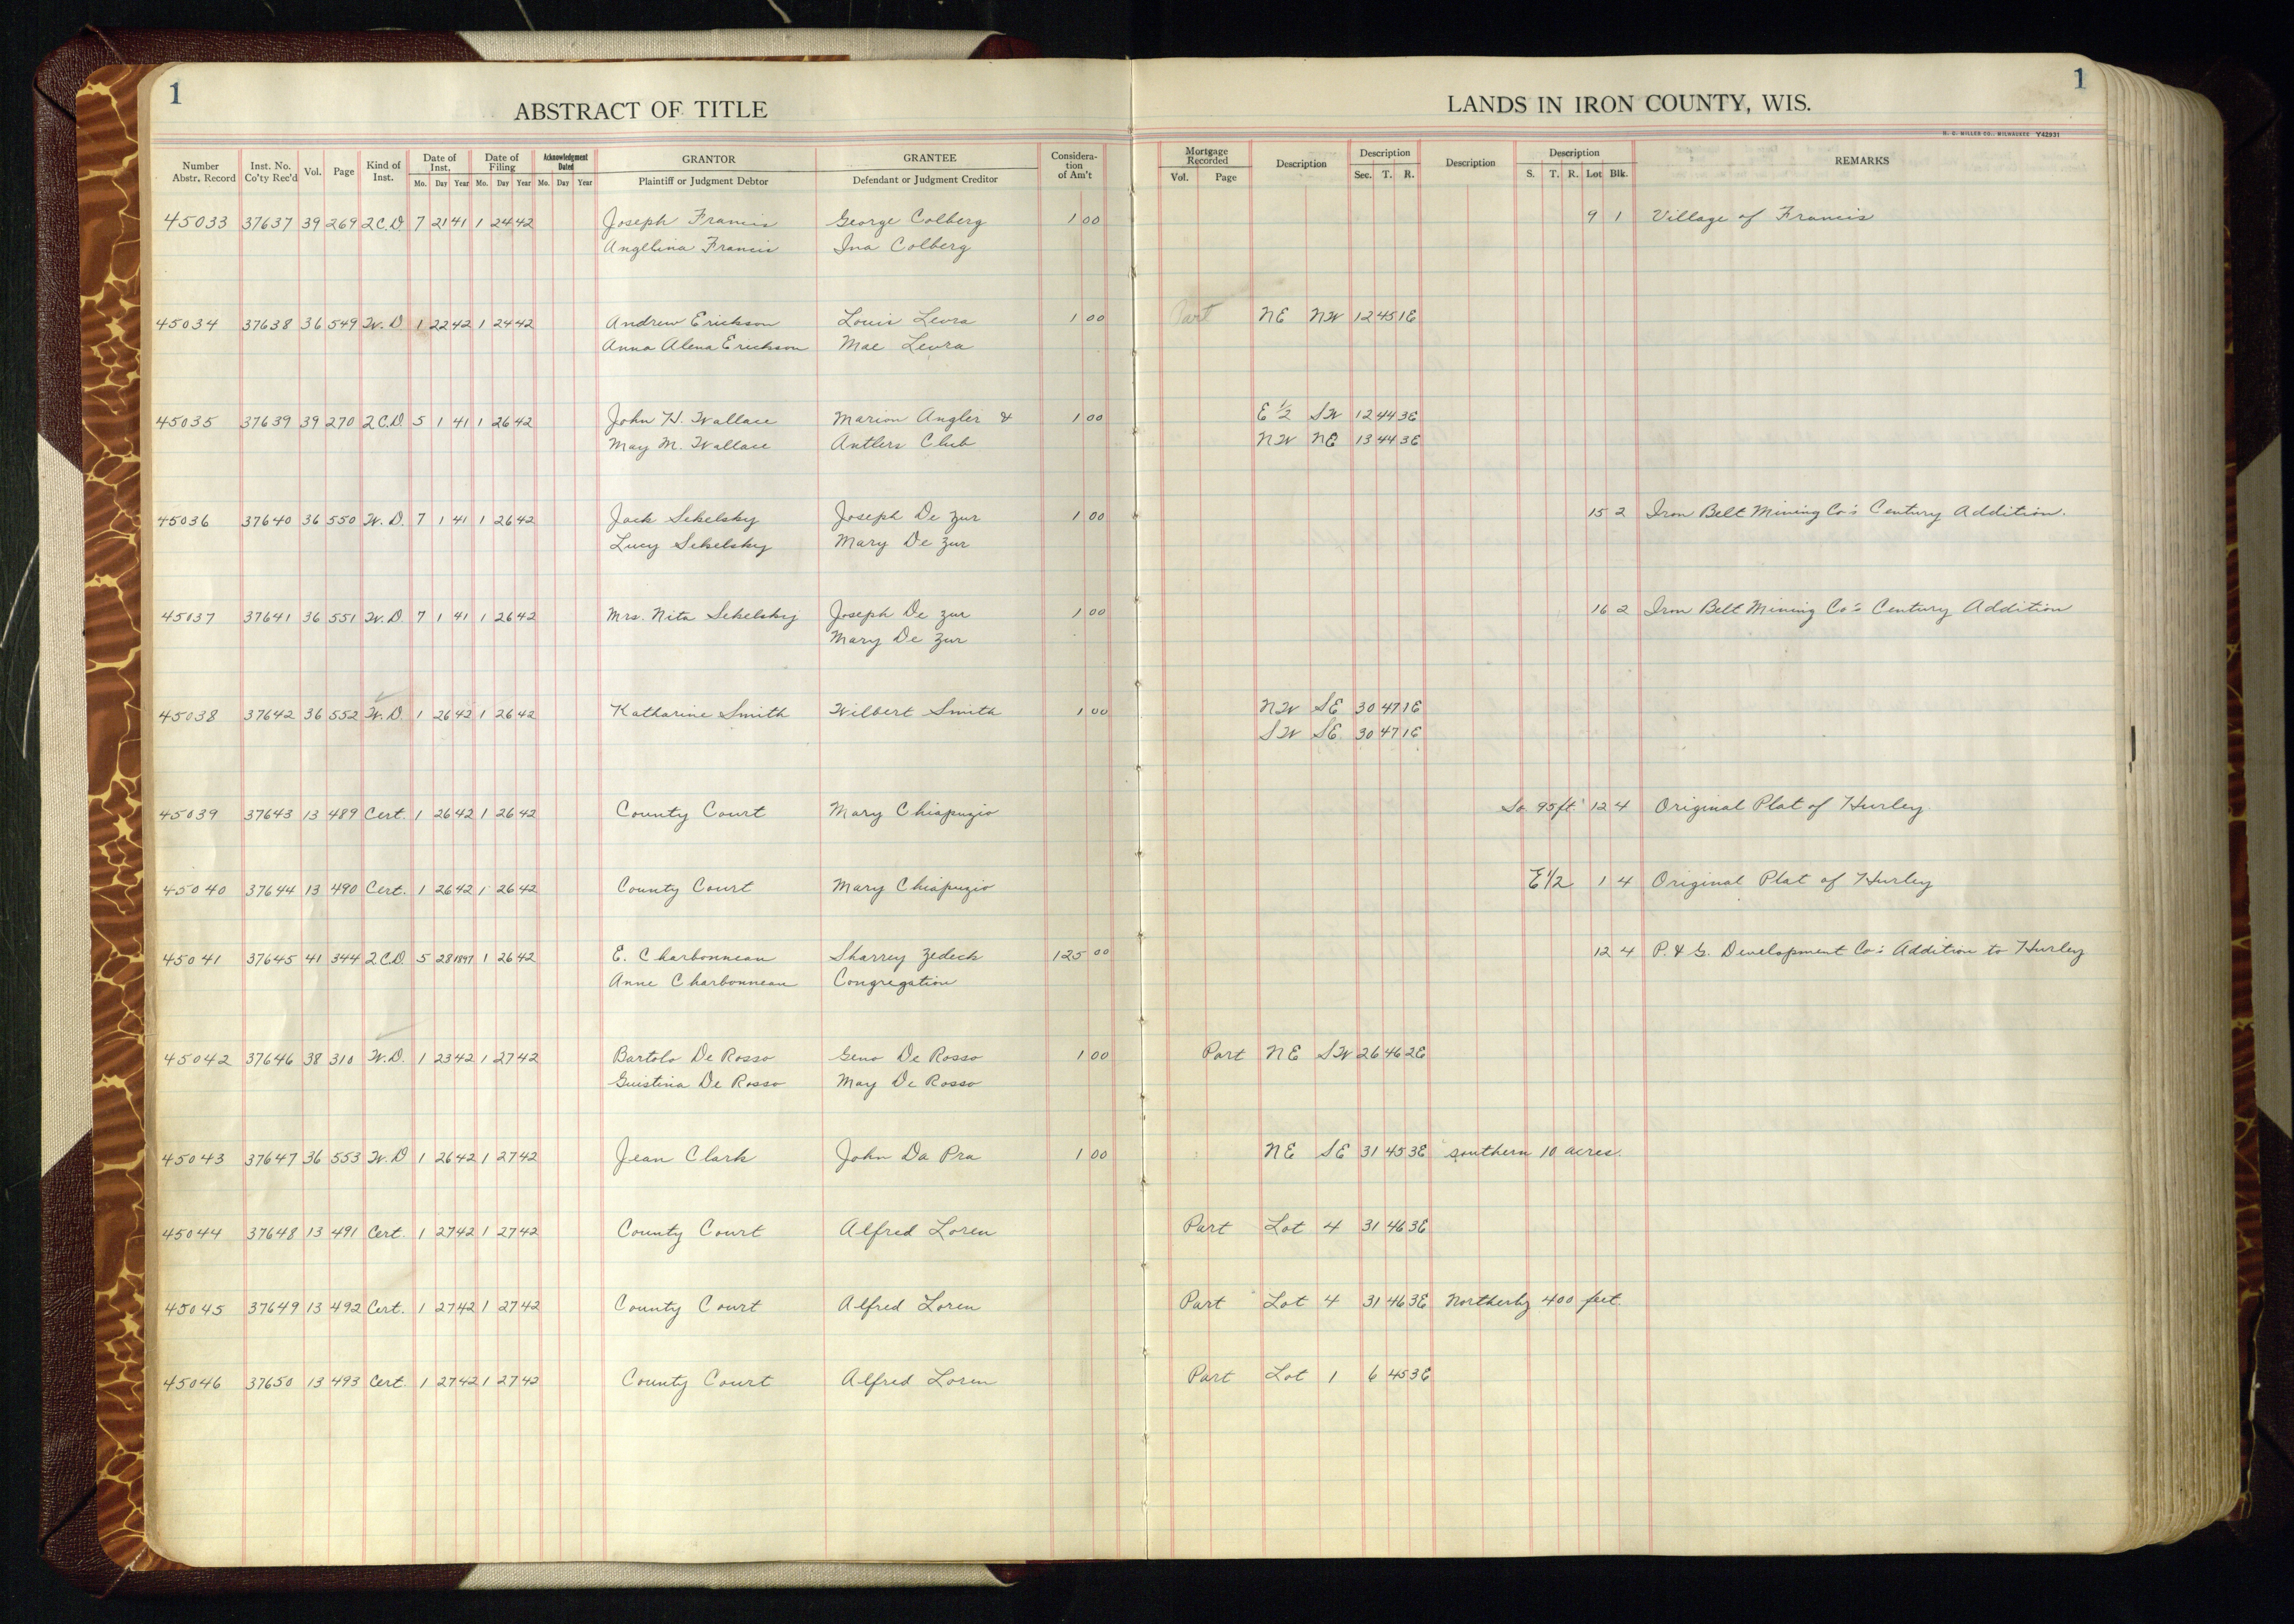 1
ABSTRACT OF TITLE
LANDS IN IRON COUNTY, WIS.
1
H. C. MILLER CO., MILWAUKEE Y42931
Number Abstr. Record Inst. No. Co'ty Rec'd Vol. Page Kind of Inst. Date of Inst. Mo. Day Year Date of Filing Mo. Day Year Acknowledgment Dated Mo. Day Year GRANTOR Plaintiff or Judgment Debtor GRANTEE Defendant or Judgment Creditor Considera-tion of Am't Mortgage Recorded Vol. Page Description Description Sec. T. R. Description Description S. T. R. Lot Blk. REMARKS
45033 37637 39 269 2C.D 7 21 41 1 24 42 Joseph Francis George Colberg 1 00 9 1 Village of Francis
Angelina Francis Ina Colberg
45034 37638 36 549 W.D. 1 22 42 1 24 42 Andrew Erickson Louis Leora 1 00 Part NE NW 12 45 1E
Anna Alena Erickson Mae Leora
45035 37639 39 270 2C.D. 5 1 41 1 26 42 John H. Wallace Marion Angler & 1 00 E 1/2 SW 12 44 3E
May M. Wallace Antlers Club NW NE 13 44 3E
45036 37640 36 550 W.D. 7 1 41 1 26 42 Jack Sekelsky Joseph De Zur 1 00 15 2 Iron Belt Mining Co's Century Addition.
Lucy Sekelsky Mary De Zur
45037 37641 36 551 W.D. 7 1 41 1 26 42 Mrs. Nita Sekelsky Joseph De Zur 1 00 16 2 Iron Belt Mining Co's Century Addition
Mary De Zur
45038 37642 36 552 W.D. 1 26 42 1 26 42 Katharine Smith Wilbert Smith 1 00 NW SE 30 47 1E
SW SE 30 47 1E
45039 37643 13 489 Cert. 1 26 42 1 26 42 County Court Mary Chiapuzio So. 95 ft. 12 4 Original Plat of Hurley
45040 37644 13 490 Cert. 1 26 42 1 26 42 County Court Mary Chiapuzio E 1/2 1 4 Original Plat of Hurley
45041 37645 41 344 2C.D 5 28 1897 1 26 42 E. Charbonneau Sharrey Zedeck 125 00 12 4 P. & G. Development Co's Addition to Hurley
Anne Charbonneau Congregation
45042 37646 38 310 W.D. 1 23 42 1 27 42 Bartolo De Rosso Geno De Rosso 1 00 Part NE SW 26 46 2E
Guistina De Rosso May De Rosso
45043 37647 36 553 W.D 1 26 42 1 27 42 Jean Clark John Da Pra 1 00 NE SE 31 45 3E southern 10 acres.
45044 37648 13 491 Cert. 1 27 42 1 27 42 County Court Alfred Loren Part Lot 4 31 46 3E
45045 37649 13 492 Cert. 1 27 42 1 27 42 County Court Alfred Loren Part Lot 4 31 46 3E Northerly 400 feet.
45046 37650 13 493 Cert. 1 27 42 1 27 42 County Court Alfred Loren Part Lot 1 6 45 3E